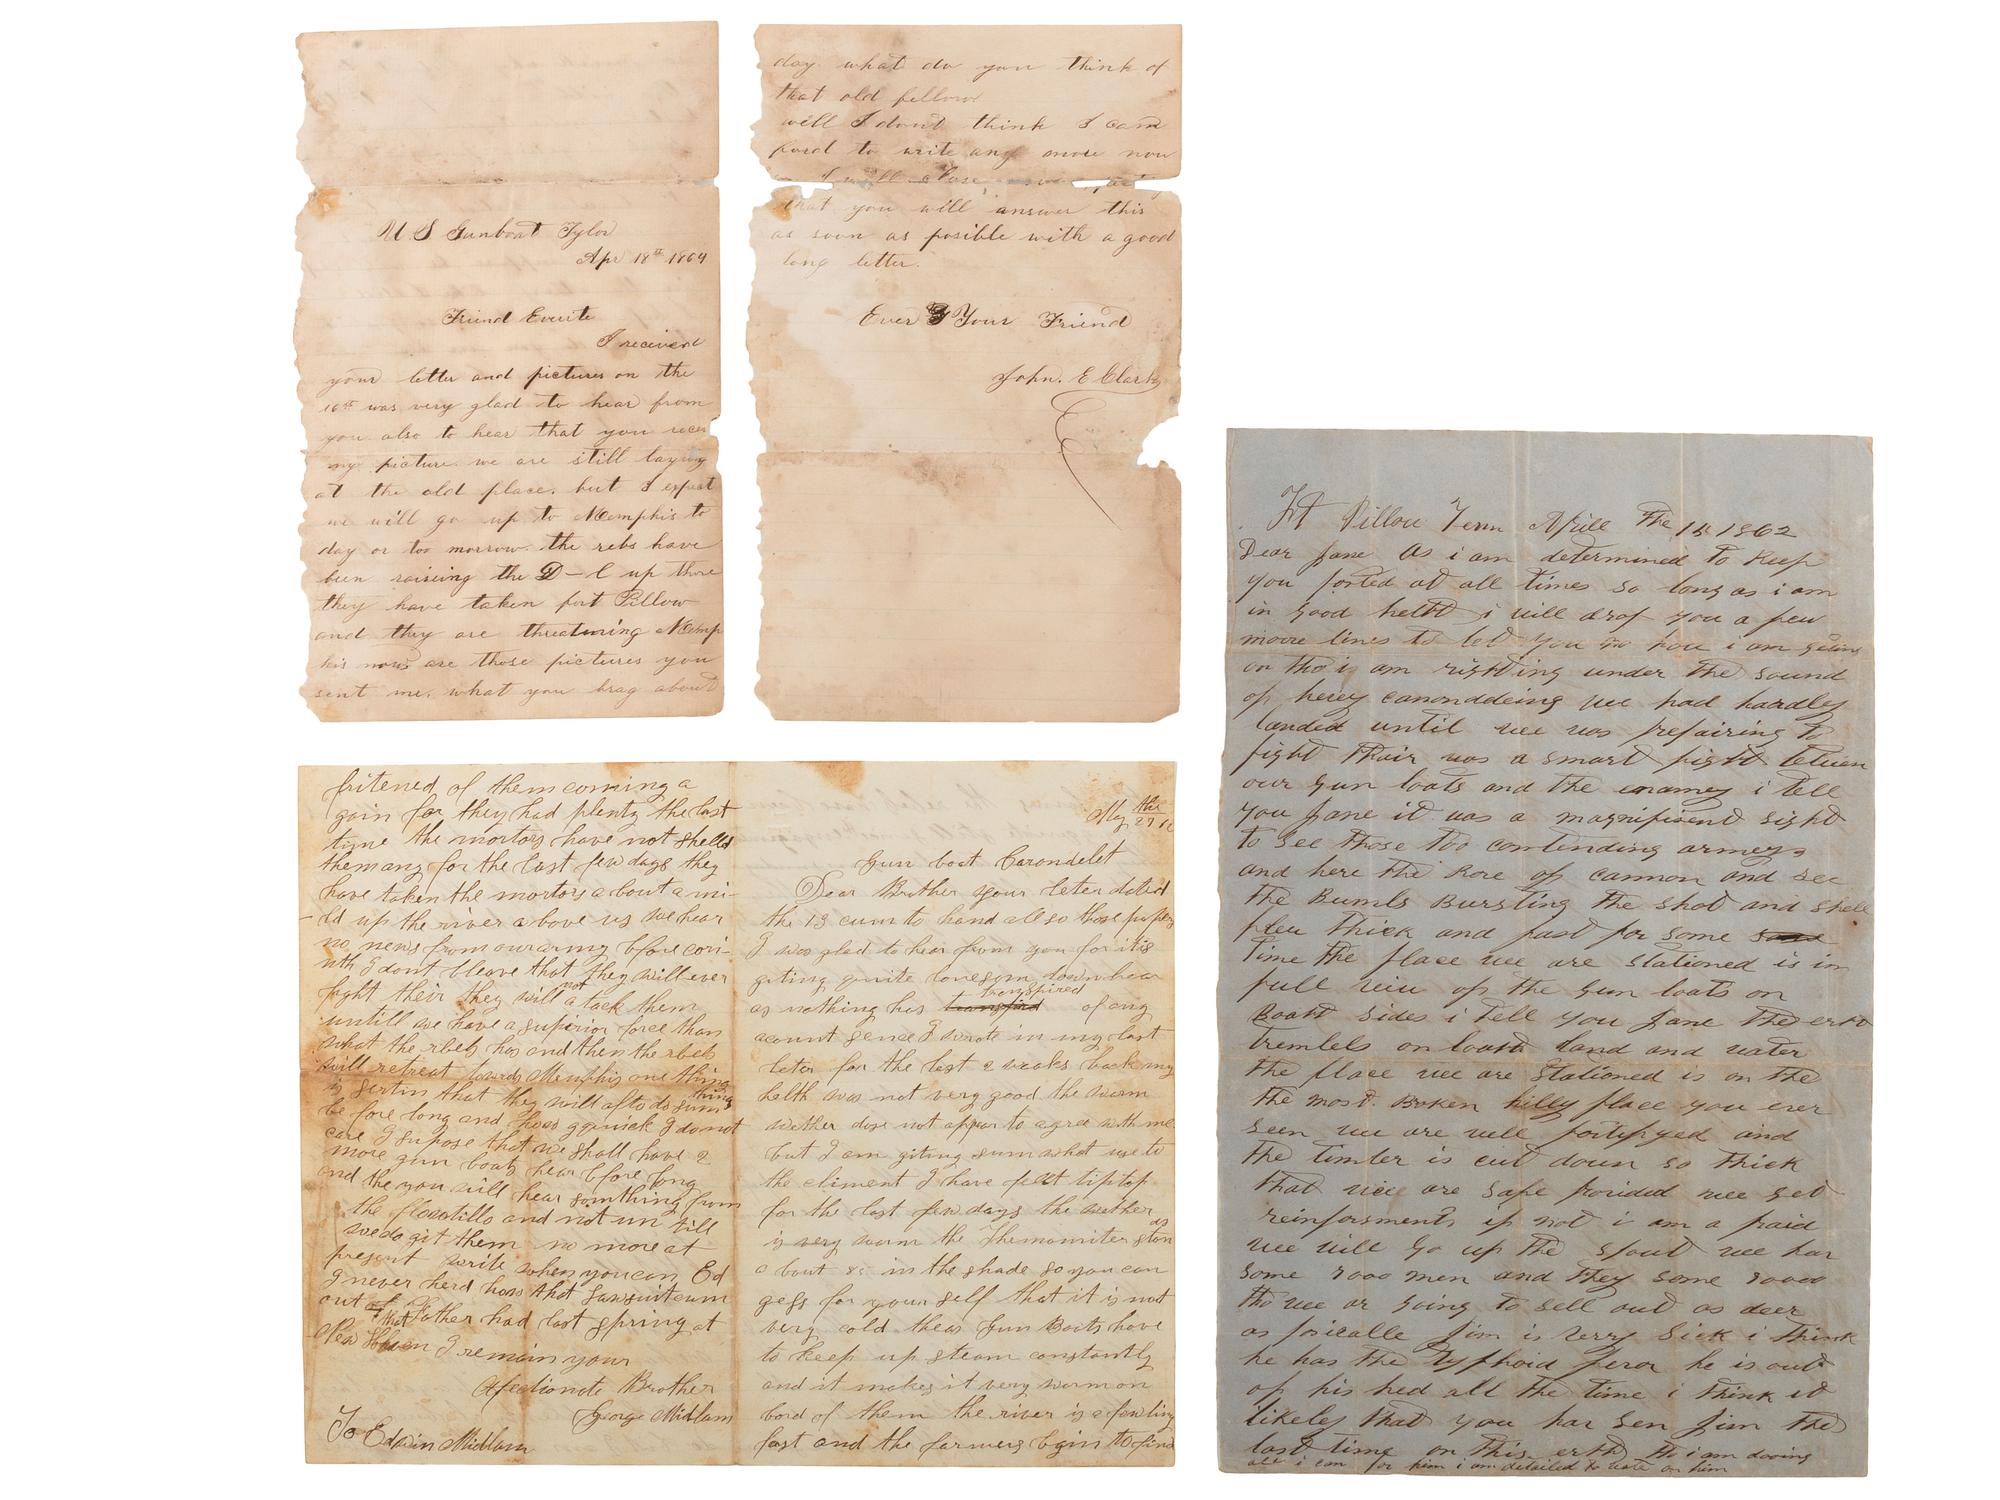 U S Gunboat Tylor
Apr 18th 1864
Friend Everite
I recieved
your letter and pictures on the
16th was very glad to hear from
you also to hear that you recev
my picture. we are still laying
at the old place. but I expect
we will go up to Memphis to
day or too morrow. the rebs have
ben raising the D-l up there
they have taken fort Pillow
and they are threatning Memp
his now are those pictures you
sent me. what you brag about
day. what do you think of
that old fellow
well I dont think I can
ford to write any more now
I will close
that you will answer this
as soon as posible with a good
long letter.
Ever Your Friend
John. E Clark
fritened of them coming a
gain for they had plenty the last
time the mortors have not shelld
them any for the last few days they
have taken the mortors a bout a mi-
ld up the river a bove us we hear
no news from our army bfore cori-
nth I dont bleave that they will ever
fight their they will not a tack them
untill we have a superior force than
what the rbels has and then the rbels
will retreat towards Memphis one thing
is sertin that they will afto do sum thing
be fore long and hows qquick I do not
care I supose that we shall have 2
more gun boats hear bfore long
and the you will hear somthing from
the flowtillo and not un till
we do git them no more at
present write when you can Ed
I never herd how that Lawsuit cum
out that Father had last spring at
New Haven I remain your
Afectionate Brother
George Midlam
To Edwin Midlam
May the 27
Gun boat Carondelet
Dear Brother your leter dated
the 13 cum to hand all so those papers
I was glad to hear from you for it is
giting quite lonesom down hear
as nothing has transpired of any
acount sence I wrote in my last
leter for the last 2 weaks back my
helth was not very good the warm
wether dose not appear to agree with me
but I am giting sumwhat use to
the climent I have felt tip top
for the last few days the wether
is very warm the Themomiter stands
a bout 85 in the shade so you can
gess for your self that it is not
very cold theas Gun Boats have
to keep up steam constantly
and it makes it very warm on
bord of them the river is a fawling
fast and the farmers bgin to find
Ft Pillow Tenn Aprile The 15 1862
Dear Jane As i am determined to keep
you posted at all times so long as i am
in good helth i will drop you a few
moore lines to let you no how i am geting
on tho i am righting under the sound
of hevey canonddeing we had hardly
landed until wee was prepairing to
fight Thair was a smart fight betwen
our gun boats and the enamey i tell
you Jane it was a magnifisent sight
to see those too contending armeys
and here the Rore of cannon and see
the Bumbs Bursting the shot and shell
flew thick and fast for some
time the place wee are stationed is in
full view of the gun boats on
Boath sides i tell you Jane the erth
trembels on boath land and water
the place wee are stationed is on the
the most Broken hilly place you ever
seen we are well fortifyed and
the timber is cut down so thick
that wee are safe provided wee get
reinforsments if not i am a fraid
wee will go up the spout wee hav
some 7000 men and they some 30000
tho we ar going to sell out as deer
as posicalle Jim is verry sick i think
he has the tyfhoid fever he is out
of his hed all the time i think it
likeley that you hav seen Jim the
last time on this erth tho i am dooing
all i can for him i am detailed to wate on him